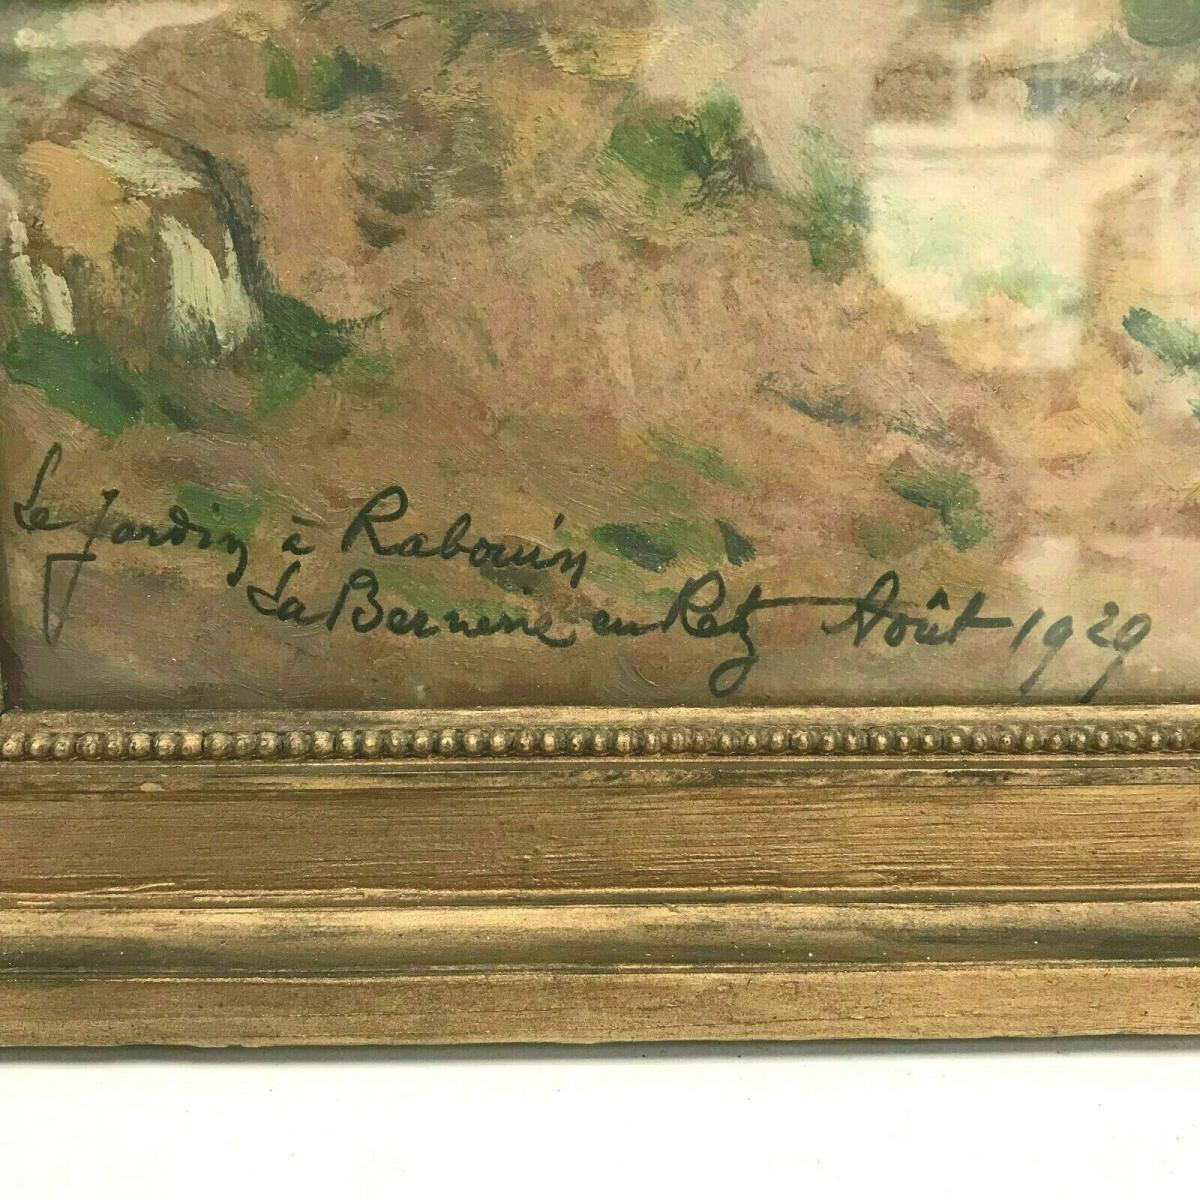 Le jardin à Rabouin
La Bernerie en Retz Août 1929